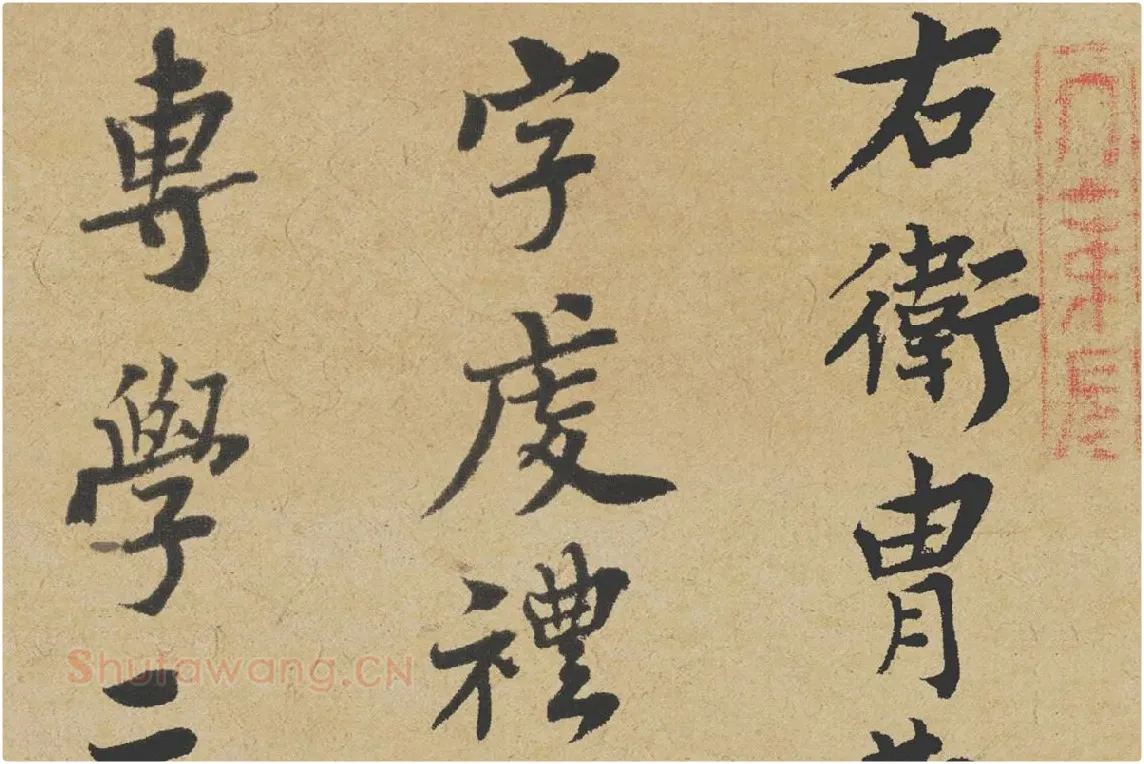 右衛胄
字虔禮
專學二
Shufawang.CN